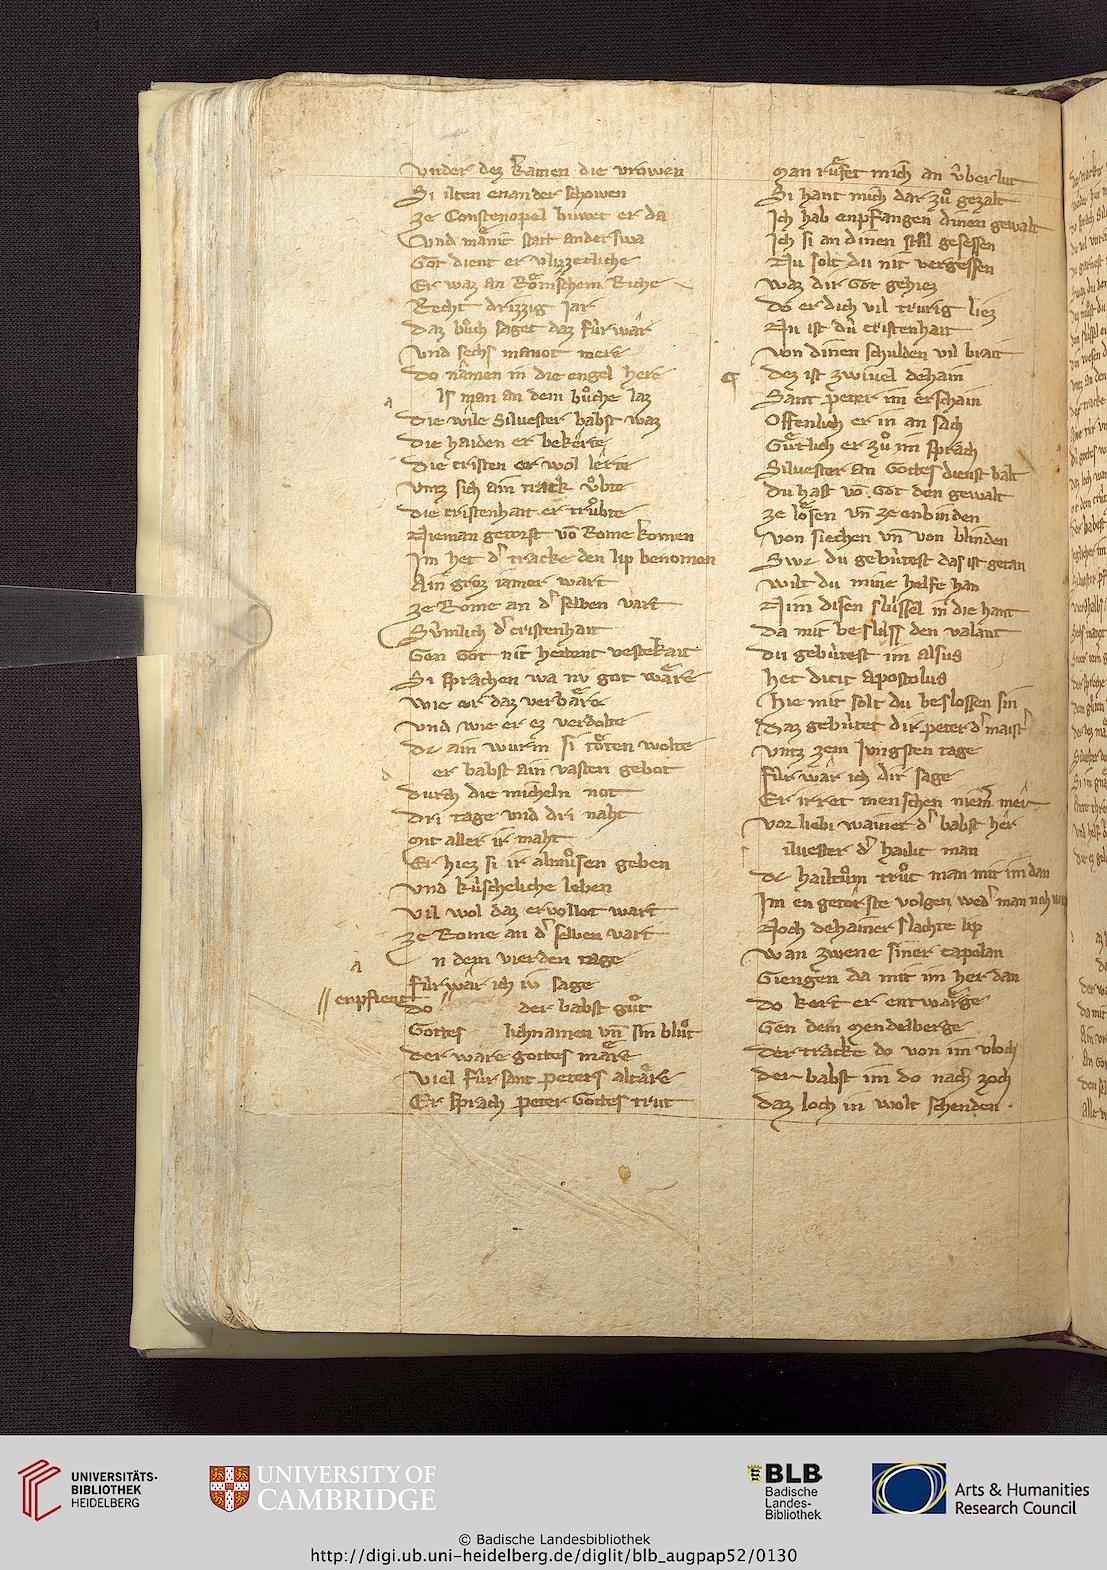 vnder dez kamen die vrowen
Si ilten enander schowen
ze Constenopel buwet er da
vnd mänic statt anderswa
Got dient er vlizzecliche
Er waz an Römschem Riche
Recht drizzig jar
Daz bůch saget daz fúr war
vnd sechs manot mere
do namen in die engel here
a ls man an dem bůche laz
die wile Siluester babst waz
die haiden er bekerte
die cristen er wol lerte
vntz sich ain track ůbte
die cristenhait er trůbte
Nieman getorst võ Rome komen
Im het d' tracke den lip benomen
Ain groz iamer wart
ze Rome an d' selben vart
Sümlich d' cristenhait
Gen Got nit hettent vestekait
Si sprachen wa nv got wäre
wie er daz verbäre
vnd wie er ez verdolte
dc ain wurm si töten wolte
d er babst ain vasten gebot
durch die micheln not
dri tage vnd dri naht
mit aller ir maht
Er hiez si ir almůsen geben
vnd küscheliche leben
vil wol daz ervollot wart
ze Rome an d' selben vart
a n dem vierden tage
fúr war ich iv sage
// enpfient
do // der babst gůt
Gottes lichnamen vñ sin blůt
der ware gottes märe
viel fúr sant peters altäre
Er sprach peter Gottes trut
man růfet mich an v́berlut
Si hant mich dar zů gezalt
Ich hab enpfangen dinen gewalt
Ich si an dinen stůl gesessen
Nu solt du nit vergessen
waz dir Got gehiez
do er dich vil trurig liez
Nu ist dú cristenhait
von dinen schulden vil brait
dez ist zwiuel dehain
Sant peter im erschain
Offenlich er in an sach
Gütlich er zů im sprach
Siluester an Gottes dienst balt
du hast võ Got den gewalt
ze lösen vñ ze enbinden
von siechen vñ von blinden
Swc du gebútest das ist getan
wilt du mine helfe han
Nim disen slússel in die hant
da mit besluss den valant
du gebútest im alsus
het dicit apostolus
hie mit solt du beslossen sin
daz gebútet dir peter d' maist'
vntz zem Jungsten tage
fúr war ich dir sage
Er irret menschen niem' mer
vor liebi wainet d' babst her
iluester d' hailic man
dc hailtům trůc man mit im dan
Im en getorste volgen wed' man noch
Noch dehainer slachte lip
wan zwene siner capolan
Giengen da mit im her dan
do kert er entwärge
Gen dem mendelberge
der tracke do von im vloch
der babst im do nach zoch
daz loch in wolt schenden
UNIVERSITÄTS-
BIBLIOTHEK
HEIDELBERG
UNIVERSITY OF
CAMBRIDGE
BLB
Badische
Landes-
Bibliothek
Arts & Humanities
Research Council
© Badische Landesbibliothek
http://digi.ub.uni-heidelberg.de/diglit/blb_augpap52/0130